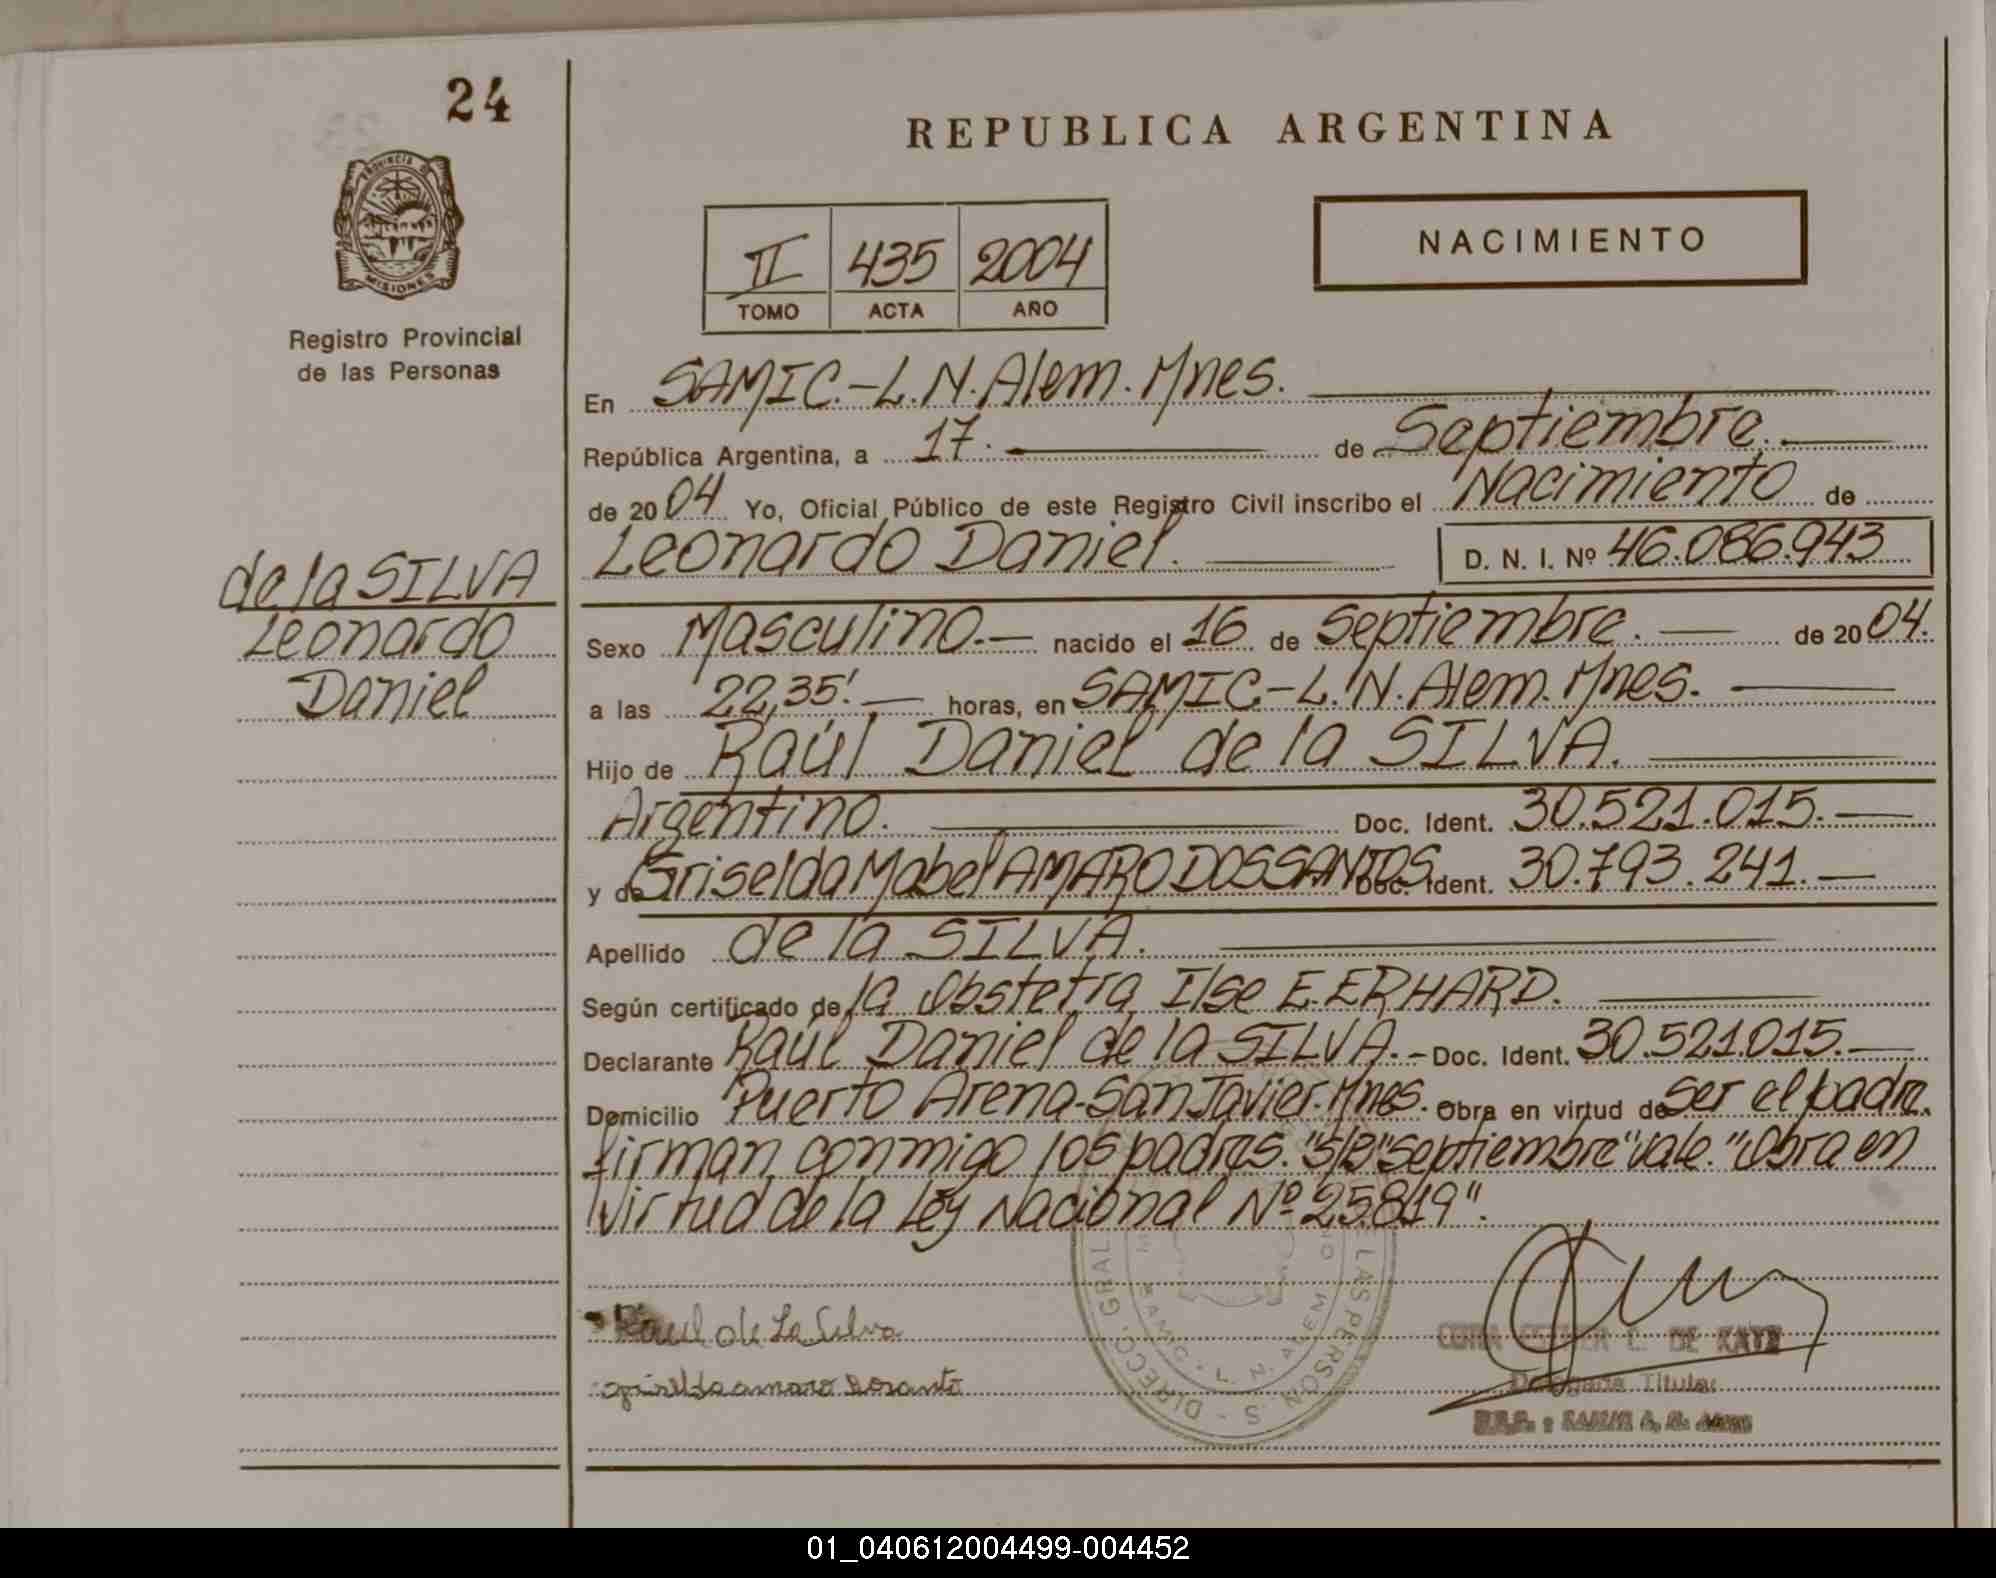 24
REPUBLICA ARGENTINA
PROVINCIA D
MISIONES
Registro Provincial
de las Personas
II 435 2004
TOMO ACTA AÑO
NACIMIENTO
En SAMIC.-L.N.Alem.Mnes.
República Argentina, a 17. de Septiembre.
de 2004 Yo, Oficial Público de este Registro Civil inscribo el Nacimiento de
Leonardo Daniel. D. N. I. Nº 46.086.943
de la SILVA
Leonardo
Daniel
Sexo Masculino.- nacido el 16 de Septiembre. de 2004.
a las 22,35'. horas, en SAMIC-L.N.Alem.Mnes.
Hijo de Raúl Daniel de la SILVA.
Argentino. Doc. Ident. 30.521.015.
y de Griselda Mabel AMARO DOS SANTOS Doc. Ident. 30.793.241.
Apellido de la SILVA.
Según certificado de la Obstetra Ilse E. ERHARD.
Declarante Raúl Daniel de la SILVA.- Doc. Ident. 30.521.015.
Domicilio Puerto Arena-San Javier.Mnes. Obra en virtud de Ser el padre.
firman conmigo los padres. "S/B" Septiembre "vale." "Obra en
virtud de la Ley Nacional Nº 25.819".
Raul de La Silva
griselda amaro dosanto
DIRECC. GRAL. LAS PERSONAS
SAMIC - L. N. ALEM
L. DE KATZ
Delegada Titular
01_040612004499-004452